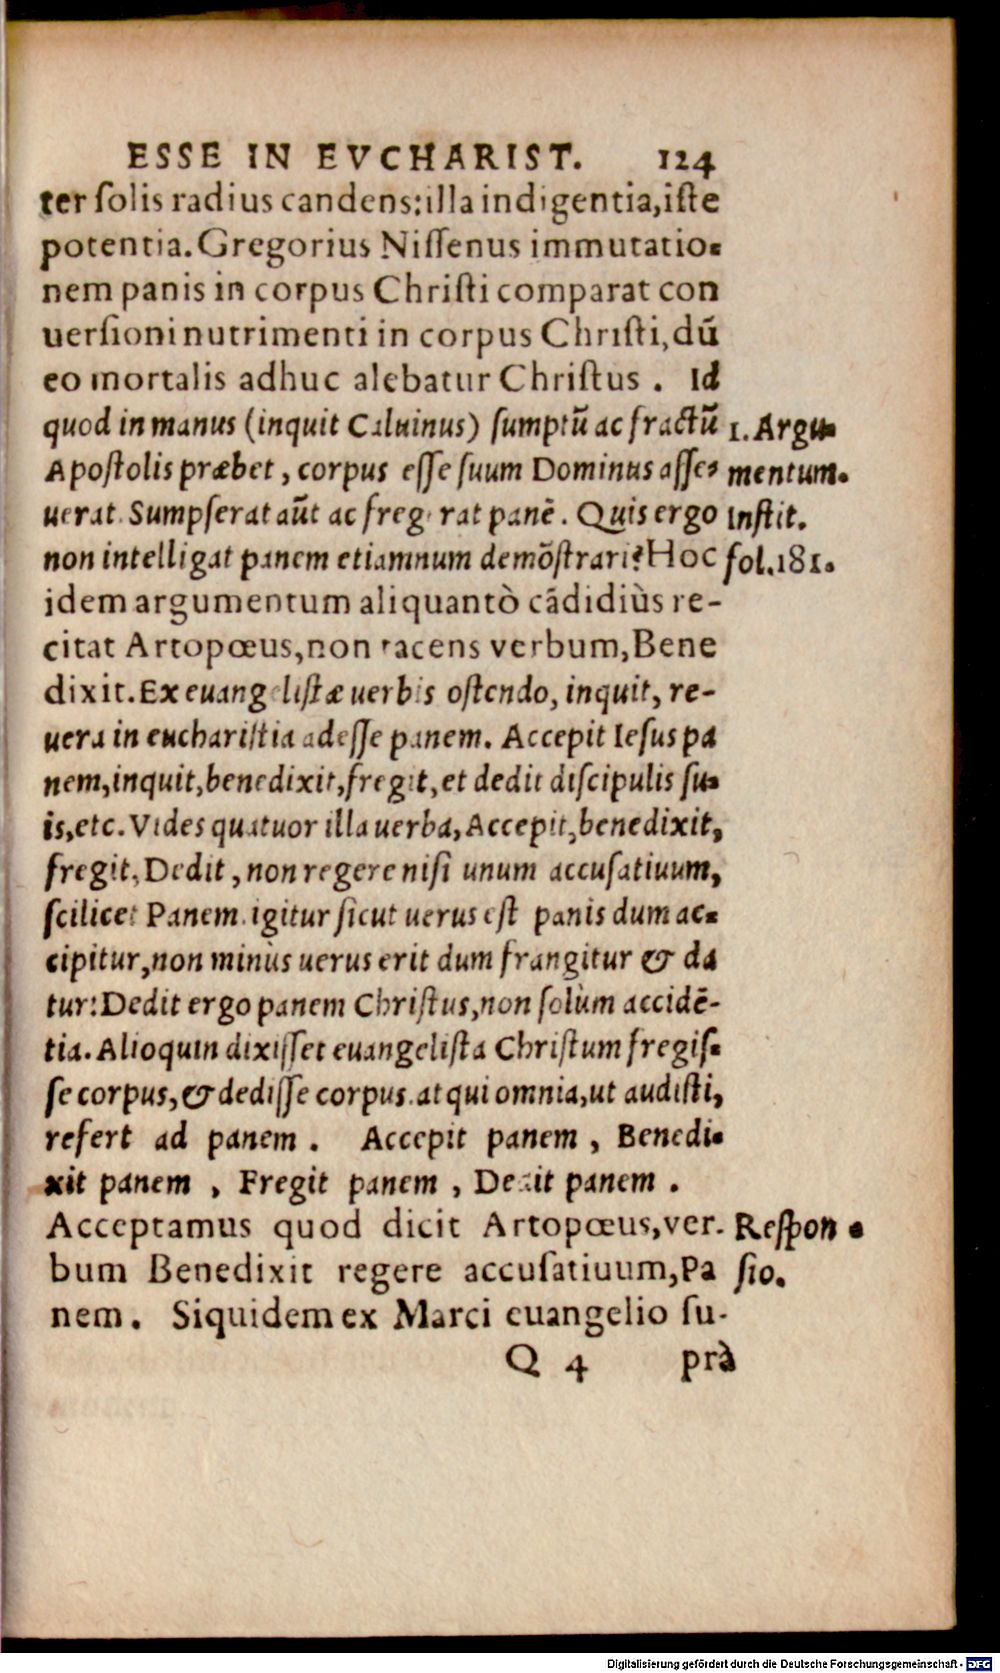 ESSE IN EVCHARIST. 124
ter ſolis radius candens: illa indigentia, iſte
potentia. Gregorius Niſſenus immutatio-
nem panis in corpus Chriſti comparat con
uerſioni nutrimenti in corpus Chriſti, dū
eo mortalis adhuc alebatur Chriſtus. Id
quod in manus (inquit Caluinus) ſumptū ac fractū
Apoſtolis præbet, corpus eſſe ſuum Dominus aſſe-
uerat. Sumpſerat aūt ac fregerat panē. Quis ergo
non intelligat panem etiamnum demōſtrari? Hoc
idem argumentum aliquantò cādidiùs re-
citat Artopœus, non tacens verbum, Bene
dixit. Ex euangeliſtæ uerbis oſtendo, inquit, re-
uera in euchariſtia adeſſe panem. Accepit Ieſus pa
nem, inquit, benedixit, fregit, et dedit diſcipulis ſu-
is, etc. Vides quatuor illa uerba, Accepit, benedixit,
fregit, Dedit, non regere niſi unum accuſatiuum,
ſcilicet Panem. igitur ſicut uerus eſt panis dum ac-
cipitur, non minùs uerus erit dum frangitur & da
tur: Dedit ergo panem Chriſtus, non ſolùm accidē-
tia. Alioquin dixiſſet euangeliſta Chriſtum fregiſ-
ſe corpus, & dediſſe corpus. at qui omnia, ut audiſti,
refert ad panem. Accepit panem, Benedi-
xit panem, Fregit panem, Dedit panem.
Acceptamus quod dicit Artopœus, ver-
bum Benedixit regere accuſatiuum, Pa
nem. Siquidem ex Marci euangelio ſu-
Q 4 prà
1. Argu-
mentum.
Inſtit.
fol. 181.
Reſpon-
ſio.
Digitalisierung gefördert durch die Deutsche Forschungsgemeinschaft - DFG